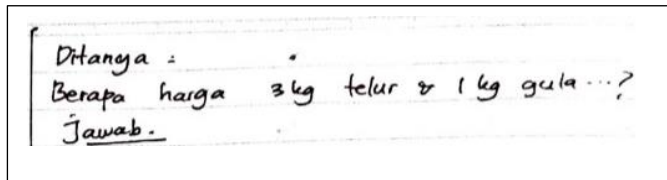 Ditanya :
Berapa harga 3 kg telur & 1 kg gula ...?
Jawab.